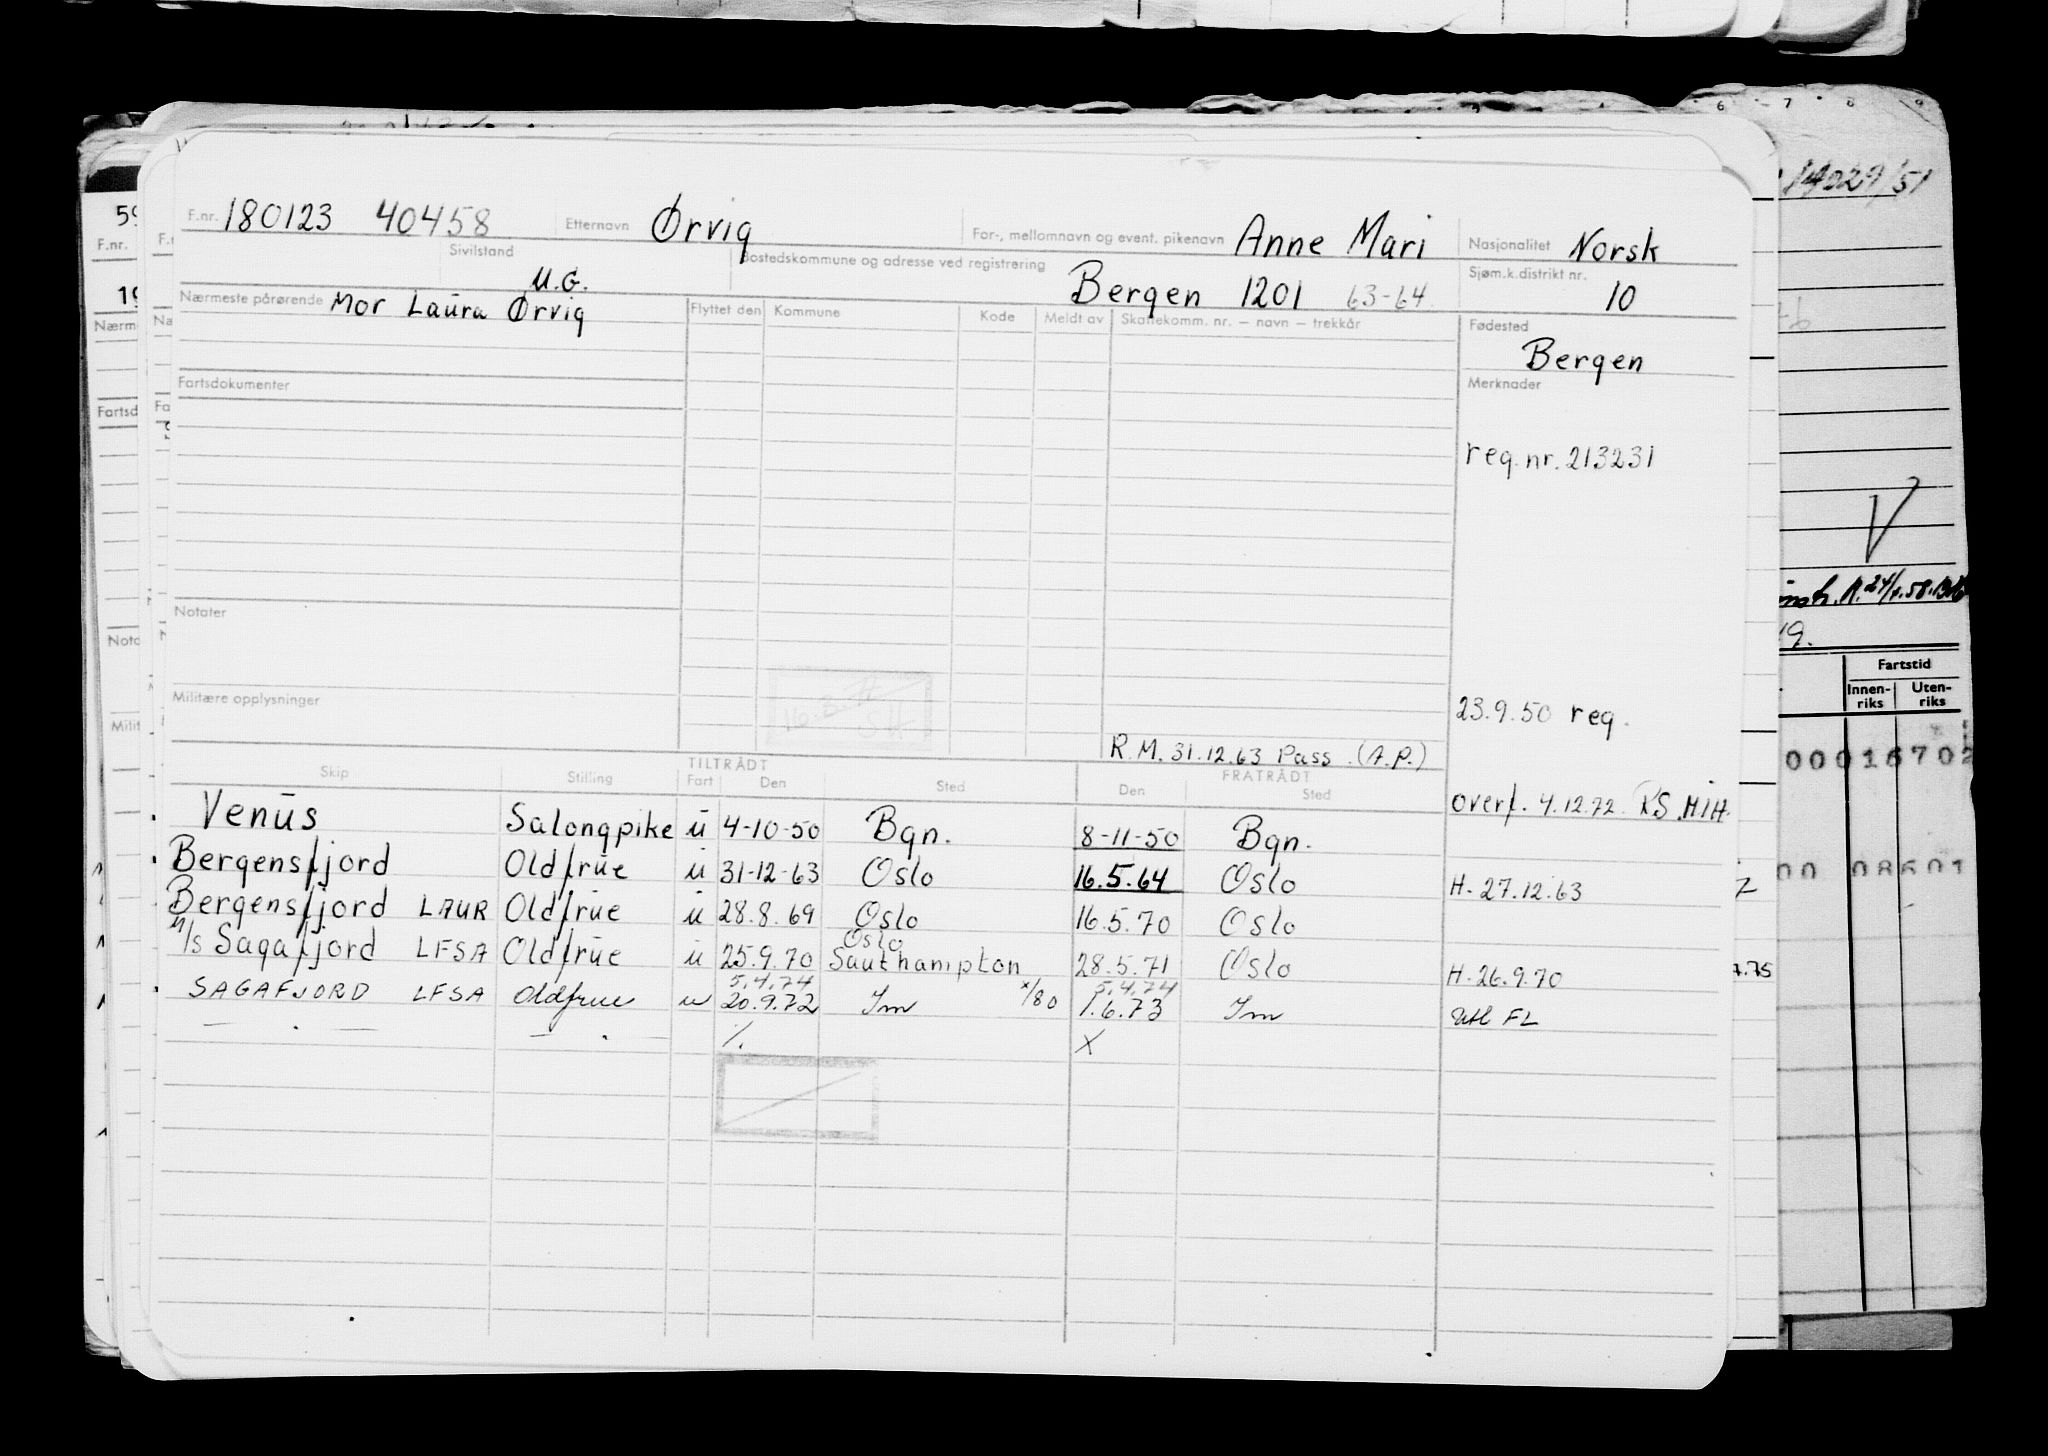 6 7 8 9
14029/51
F.nr. 180123 40458 Etternavn Ørvig For-, mellomnavn og event. pikenavn Anne Mari Nasjonalitet Norsk
Sivilstand U.G. Bostedskommune og adresse ved registrering Bergen 1201 63-64 Sjøm.k.distrikt nr. 10
Nærmeste pårørende Mor Laura Ørvig Flyttet den Kommune Kode Meldt av Skattekomm. nr. – navn – trekkår Fødested
Bergen
Fartsdokumenter Merknader
reg.nr. 213231
Notater
Militære opplysninger 23.9.50 reg.
R.M. 31.12.63 Pass. (A.P.)
TILTRÅDT FRATRÅDT
Skip Stilling Fart Den Sted Den Sted
overf. 4.12.72 RS MIH.
Venus Salongpike u 4-10-50 Bgn. 8-11-50 Bgn.
Bergensfjord Oldfrue u 31-12-63 Oslo 16.5.64 Oslo H. 27.12.63
Bergensfjord LAUR Oldfrue u 28.8.69 Oslo 16.5.70 Oslo
Oslo
M/S Sagafjord LFSA Oldfrue u 25.9.70 Southampton 28.5.71 Oslo H. 26.9.70
5.4.74 5.4.74
SAGAFJORD LFSA Oldfrue u 20.9.72 Im x/80 1.6.73 Im Utl FL
— . — — . — ./. X
Fartstid
Innen-riks Uten-riks